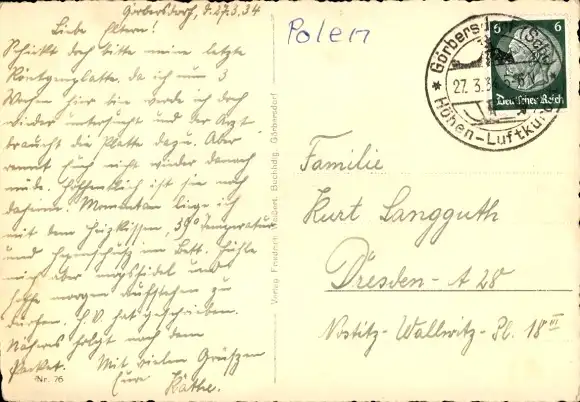 Görbersdorf, d. 27.3.34
Liebe Eltern!
Schickt doch bitte meine letzte
Röntgenplatte, da ich nun 3
Wochen hier bin werde ich doch
wieder untersucht und der Arzt
braucht die Platte dazu. Aber
rennt Euch nicht wieder danach
müde. Hoffentlich ist sie noch
daheim. Momentan liege ich
mit dem Heizkissen, 39° Temperatur
und Hexenschuß im Bett. Fühle
mich aber mopsfidel und
hoffe morgen Aufstehen zu
dürfen. hat geschrieben.
Näheres folgt nach dem
Packet. Mit vielen Grüßen
Eure Käthe.
Nr. 76
Verlag Friedrich Buchhdlg. Görbersdorf
Polen
Görbersdorf (Schles)
27.3.34
Höhen-Luftkurort
6 6
Deutsches Reich
Familie
Kurt Langguth
Dresden-A 28
Nostitz-Wallwitz-Pl. 18 III